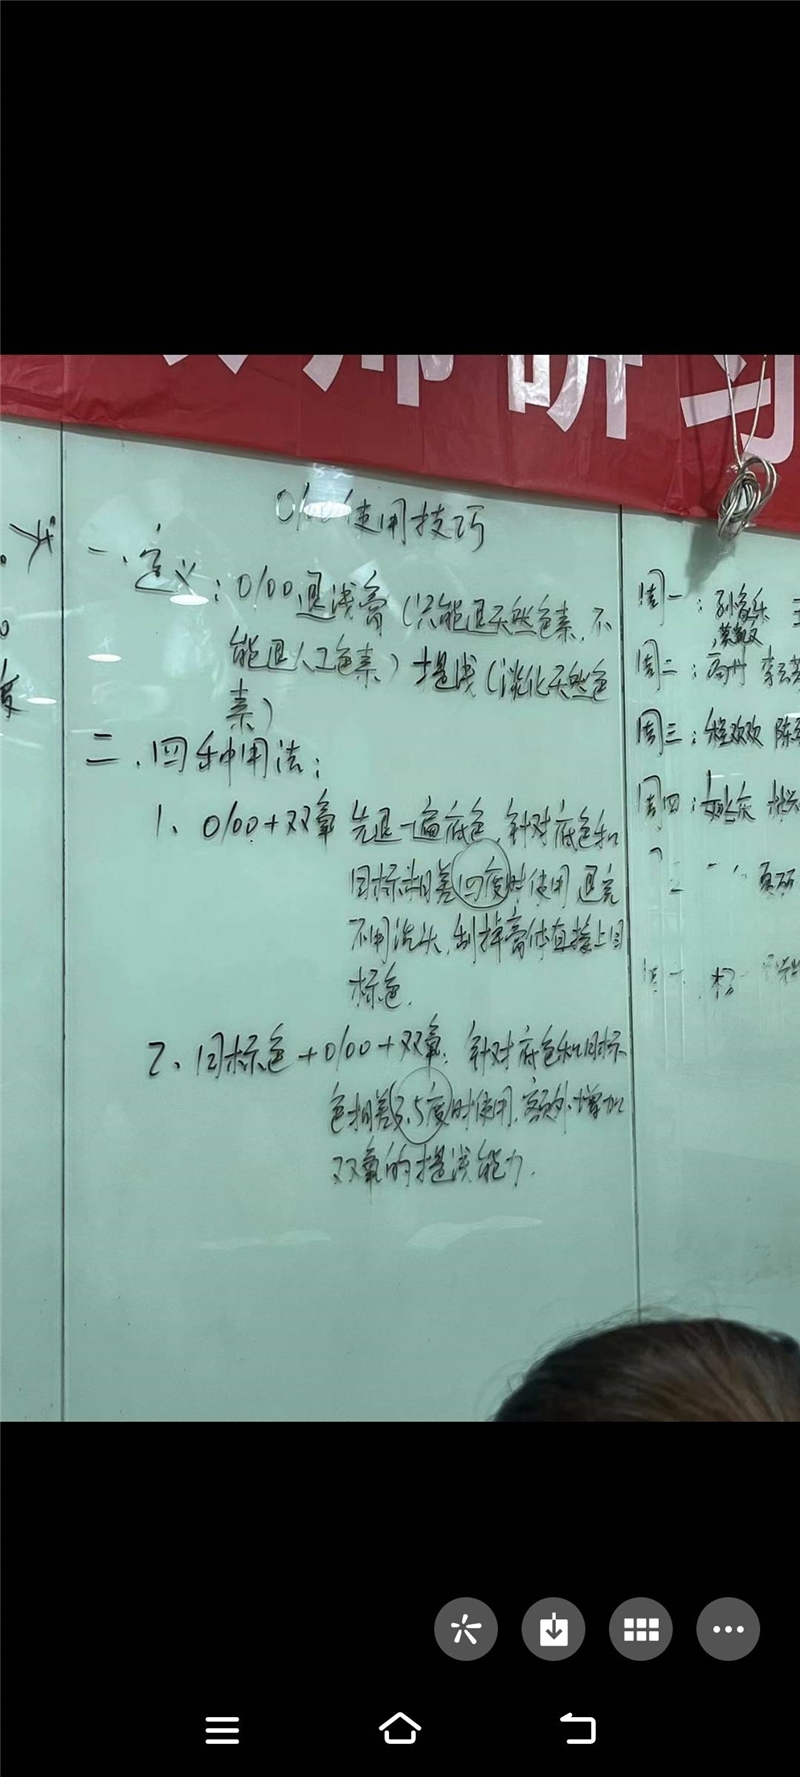 研习
0/00使用技巧
一、定义：0/00退浅膏（只能退天然色素，不
能退人工色素）提浅（淡化天然色
素）
二、四种用法：
1、0/00+双氧 先退一遍底色，针对底色和
目标相差四度时使用 退完
不用洗头，刮掉膏体直接上目
标色.
2、目标色+0/00+双氧：针对底色和目标
色相差3.5度时使用，额外增加
双氧的提浅能力.
周一：孙家乐
周二：
周三：程欢欢 陈
周四：